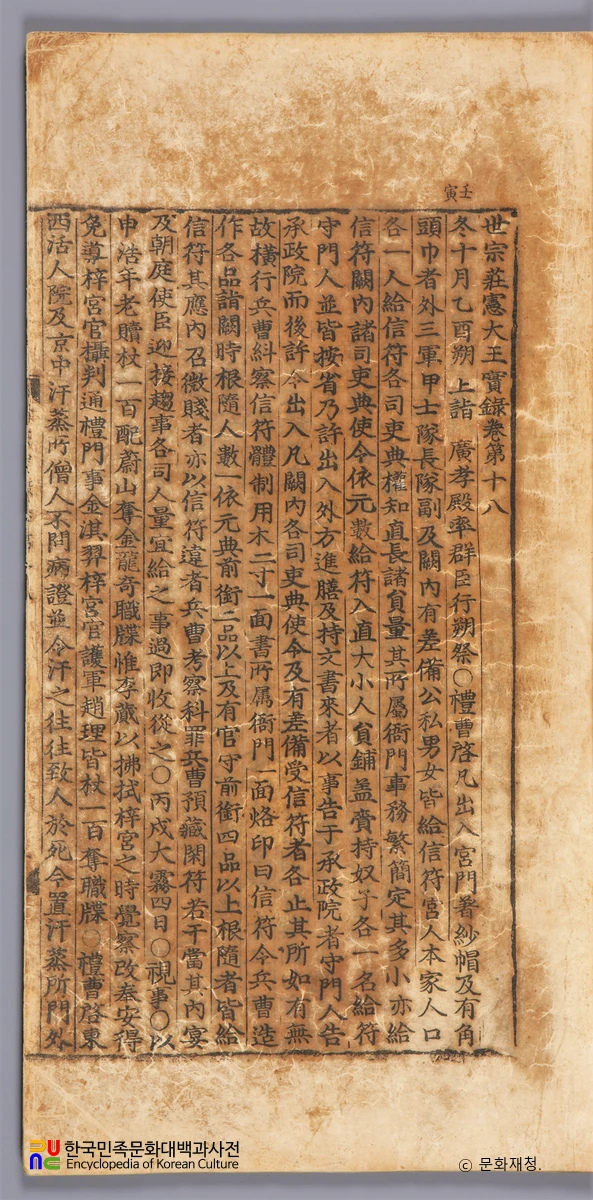 壬寅
世宗莊憲大王實錄卷第十八
冬十月乙酉朔上詣 廣孝殿率群臣行朔祭○禮曹啓凡出入宮門著紗帽及有角
頭巾者外三軍甲士隊長隊副及闕內有差備公私男女皆給信符宮人本家人口
各一人給信符各司吏典權知直長諸員量其所屬衙門事務繁簡定其多小亦給
信符闕內諸司吏典使令依元數給符入直大小人員鋪盖賫持奴子各一名給符
守門人並皆按省乃許出入外方進膳及持文書來者以事告于承政院者守門人告
承政院而後許令出入凡闕內各司吏典使令及有差備受信符者各止其所如有無
故橫行兵曹糾察信符體制用木二寸一面書所屬衙門一面烙印曰信符令兵曹造
作各品詣闕時根隨人數一依元典前銜二品以上及有官守前銜四品以上根隨者皆給
信符其應內召微賤者亦以信符違者兵曹考察科罪兵曹預藏閑符若干當其內宴
及朝庭使臣迎接趨事各司人量宜給之事過即收從之○丙戌大霧四日○視事○以
申浩年老贖杖一百配蔚山奪金龍奇職牒惟李蕆以拂拭梓宮之時覺察改奉安得
免導梓宮官攝判通禮門事金淇羿梓宮官護軍趙理皆杖一百奪職牒○禮曹啓東
西活人院及京中汗蒸所僧人不問病證並令汗之往往致人於死今置汗蒸所門外
한국민족문화대백과사전
Encyclopedia of Korean Culture
© 문화재청.